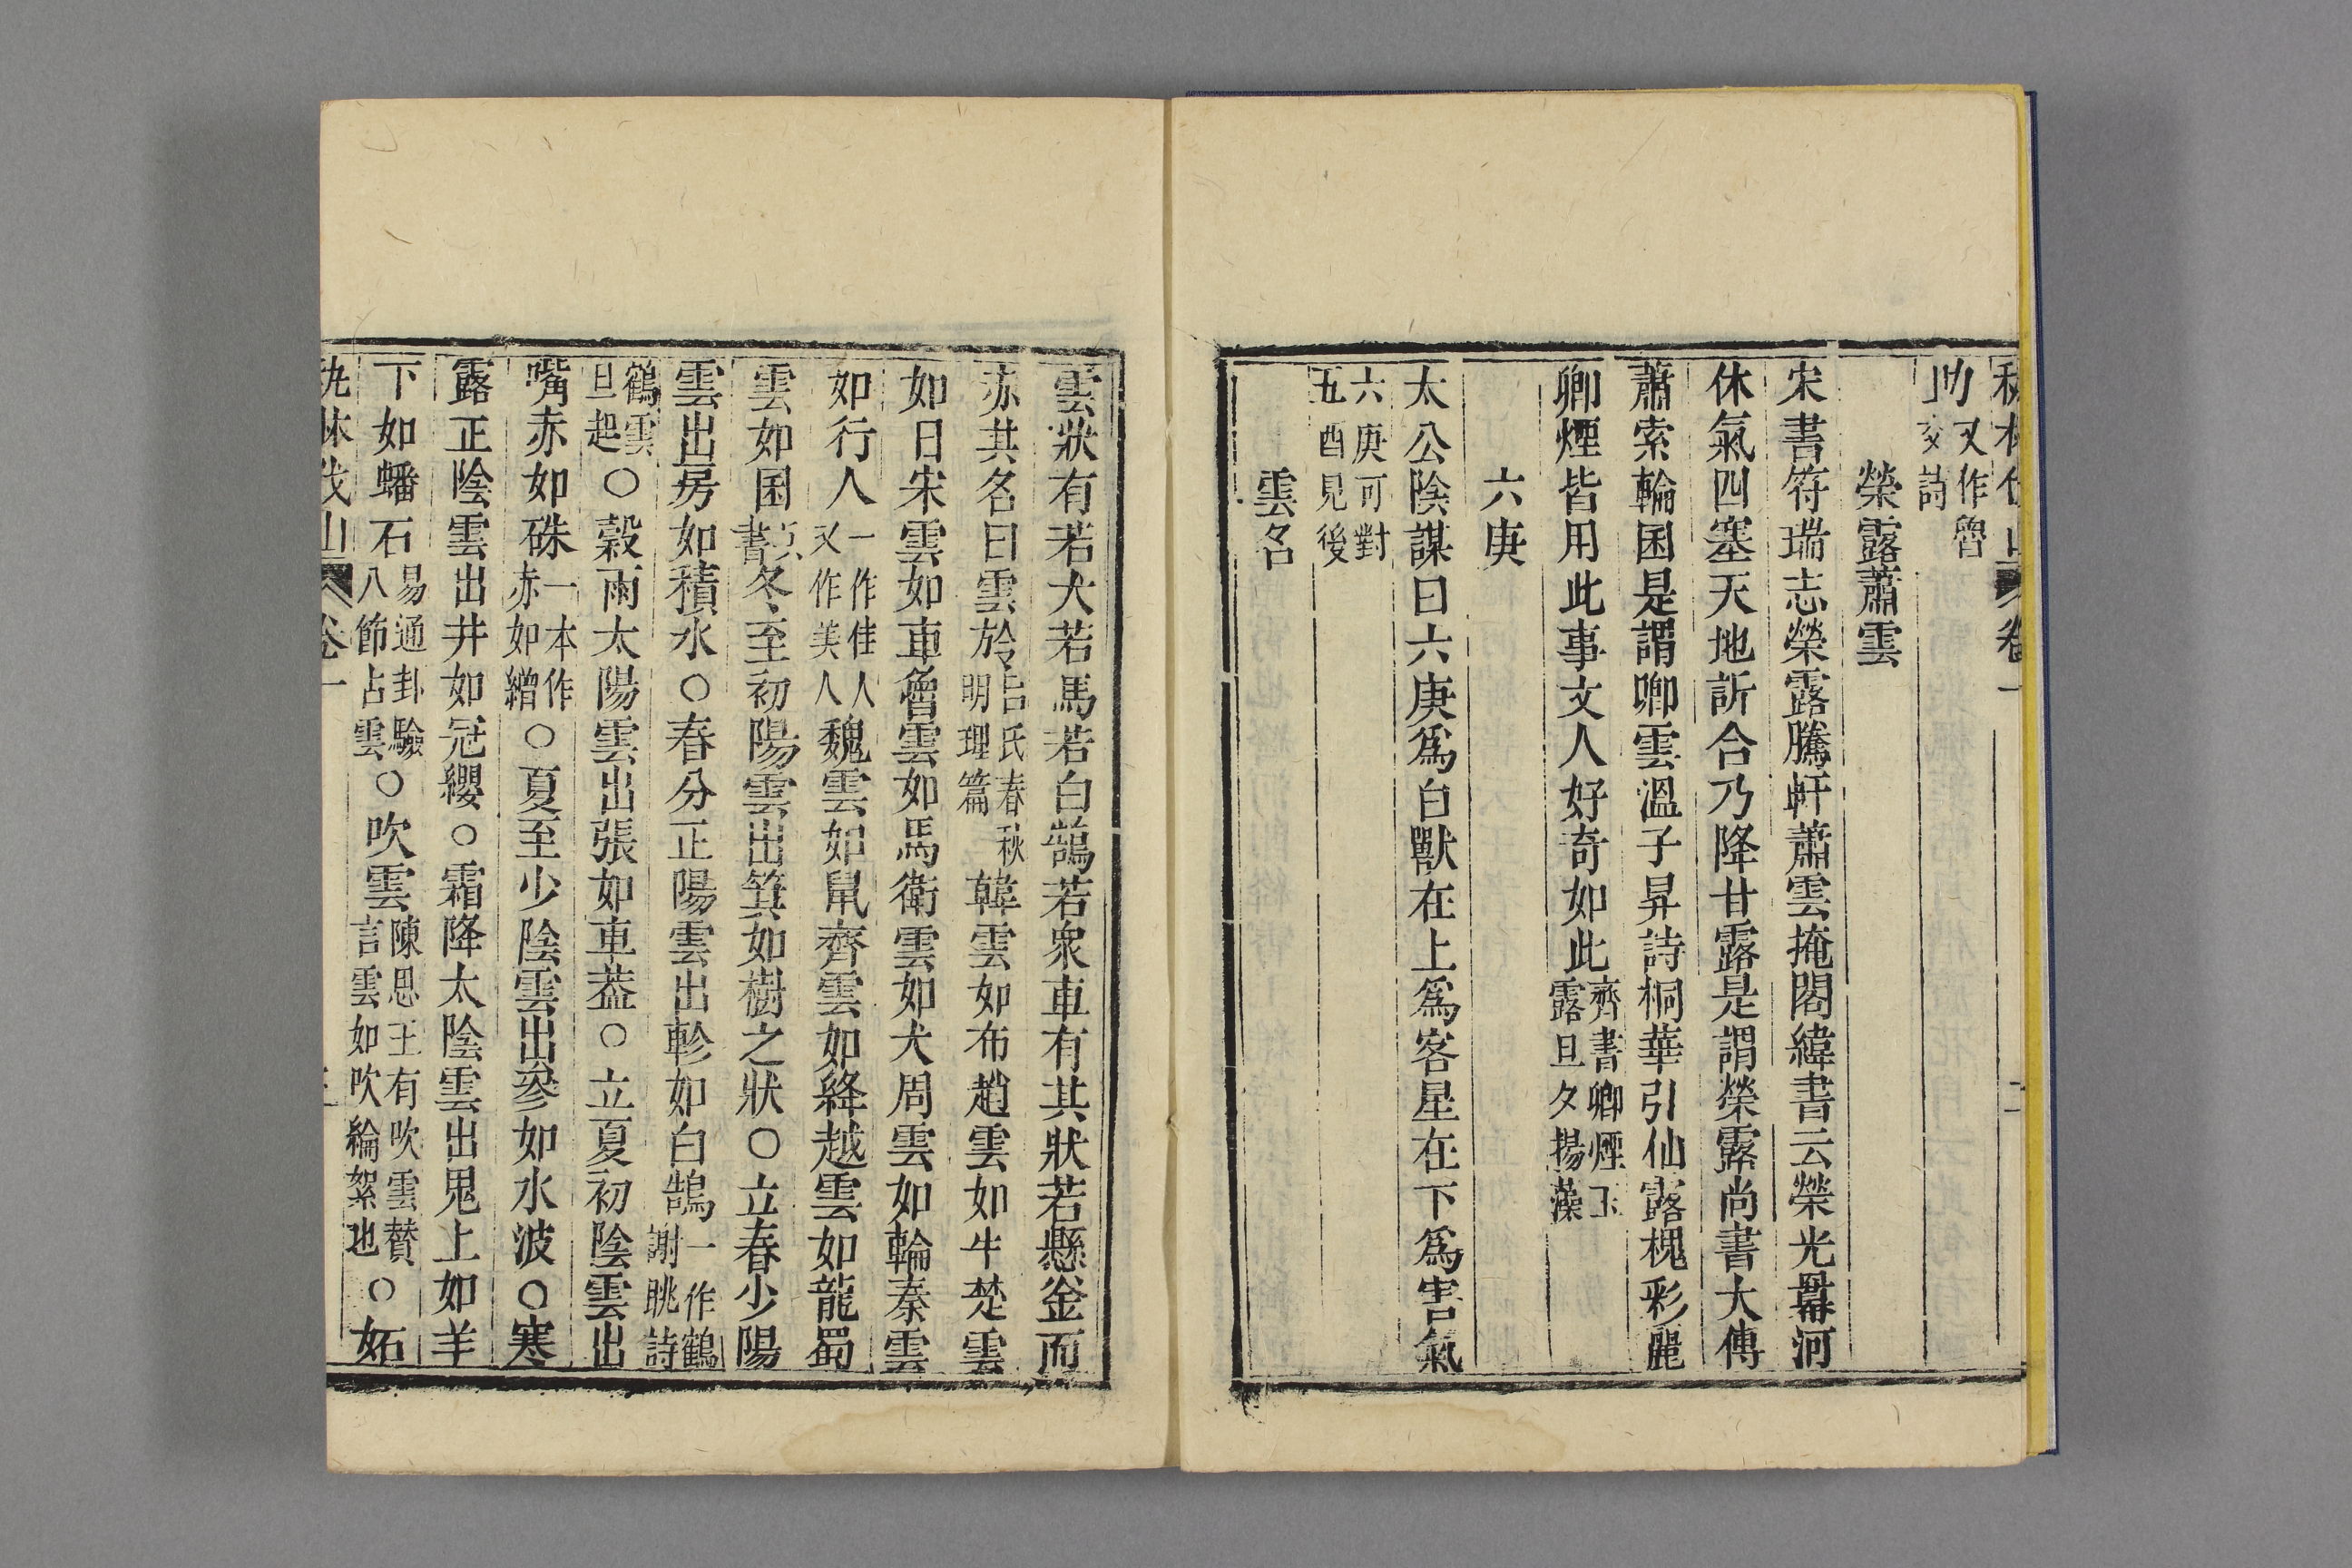 又作魯
詩
榮露蕭雲
宋書符瑞志榮露騰軒蕭雲掩閣緯書云榮光羃河
休氣四塞天地訢合乃降甘露是謂榮露尚書大傳
蕭索輪囷是謂卿雲溫子昇詩桐華引仙露槐彩麗
卿煙皆用此事文人好奇如此齊書卿煙玉
露旦夕揚藻
六庚
太公陰謀曰六庚爲白獸在上爲客星在下爲害氣
六庚可對
五酉見後
雲名
雲狀有若犬若馬若白鵠若衆車有其狀若懸釡而
赤其名曰雲旍呂氏春秋
明理篇韓雲如布趙雲如牛楚雲
如日宋雲如車魯雲如馬衛雲如犬周雲如輪秦雲
如行人一作佳人
又作美人魏雲如鼠齊雲如絳越雲如龍蜀
雲如囷
書冬至初陽雲出箕如樹之狀〇立春少陽
雲出房如積水〇春分正陽雲出軫如白鵠一作鶴
謝眺詩
鶴雲
旦起〇穀雨太陽雲出張如車葢〇立夏初陰雲出
嘴赤如硃一本作
赤如繒〇夏至少陰雲出參如水波〇寒
露正陰雲出井如冠纓〇霜降太陰雲出鬼上如羊
下如蟠石易通卦驗
八節占雲〇吹雲陳思王有吹雲賛
言雲如吹綸絮也〇妬
卷一